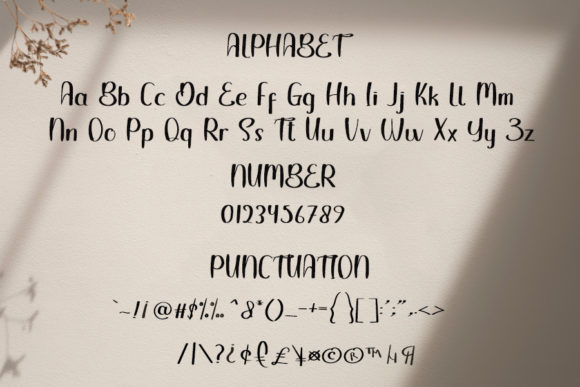 ALPHABET
Aa Bb Cc Dd Ee Ff Gg Hh Ii Jj Kk Ll Mm
Nn Oo Pp Qq Rr Ss Tt Uu Vv Ww Xx Yy Zz
NUMBER
0123456789
PUNCTUATION
`~!¡@#$%‰^&*()_-+={}[]:;'",.<>
/|\?¿¢€£¥¤©®™